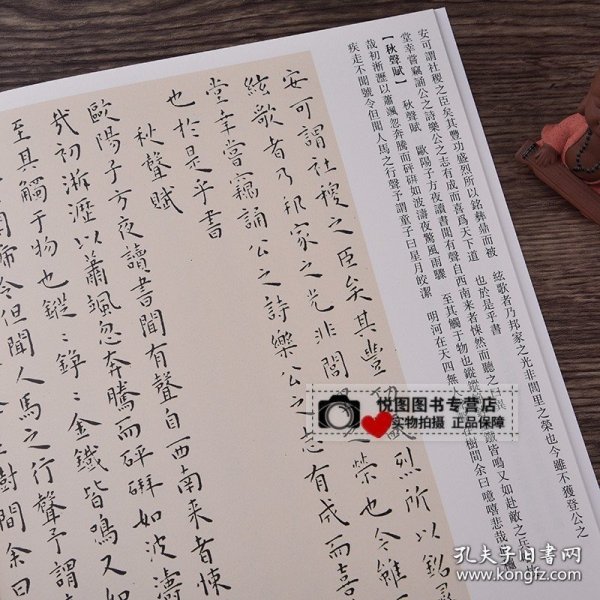 安可謂社稷之臣矣其豐功盛烈所以銘彝鼎而被 絃歌者乃邦家之光非閭里之榮也今雖不獲登公之
堂幸嘗竊誦公之詩樂公之志有成而喜爲天下道 也於是乎書
【秋聲賦】 秋聲賦 歐陽子方夜讀書聞有聲自西南来者悚然而聽之曰
哉初淅瀝以蕭颯忽奔騰而砰硑如波濤夜驚風雨驟 至其觸于物也鏦鏦 鐵皆鳴又如赴敵之兵
疾走不聞號令但聞人馬之行聲予謂童子曰星月皎潔 明河在天四無 在樹間余曰噫嘻悲哉
安可謂社稷之臣矣其豐功 烈所以銘
絃歌者乃邦家之光非閭 榮也今雖
堂幸嘗竊誦公之詩樂公之志有成而喜
也於是乎書
秋聲賦
歐陽子方夜讀書聞有聲自西南来者悚
哉初淅瀝以蕭颯忽奔騰而砰硑如波濤
至其觸于物也鏦〻錚〻金鐵皆鳴又如
號令但聞人馬之行聲予謂
樹間余曰
悦图图书专营店
实物拍摄 正品保障
孔夫子旧书网
www.kongfz.com